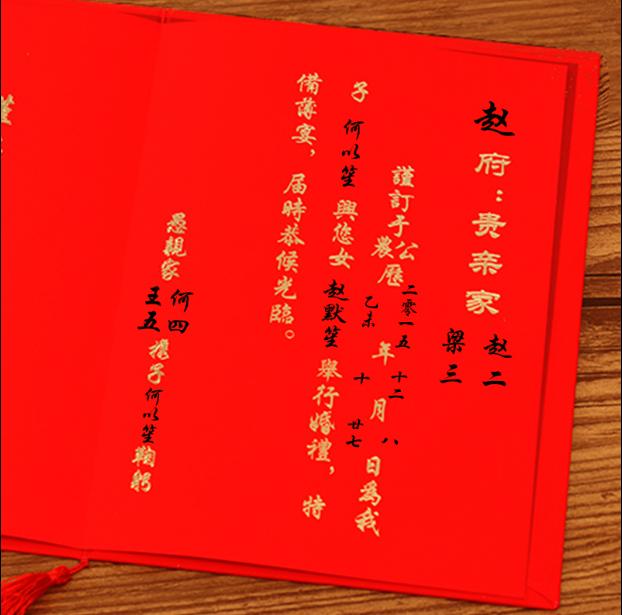 赵府：贵亲家 赵二
梁三
謹訂于公歷 二零一五 年 十二 月 八 日為我
農 乙未 十 廿七
子 何以笙 與您女 赵默笙 舉行婚禮，特
備薄宴，届時恭候光臨。
愚親家 何四 携子何以笙鞠躬
王五